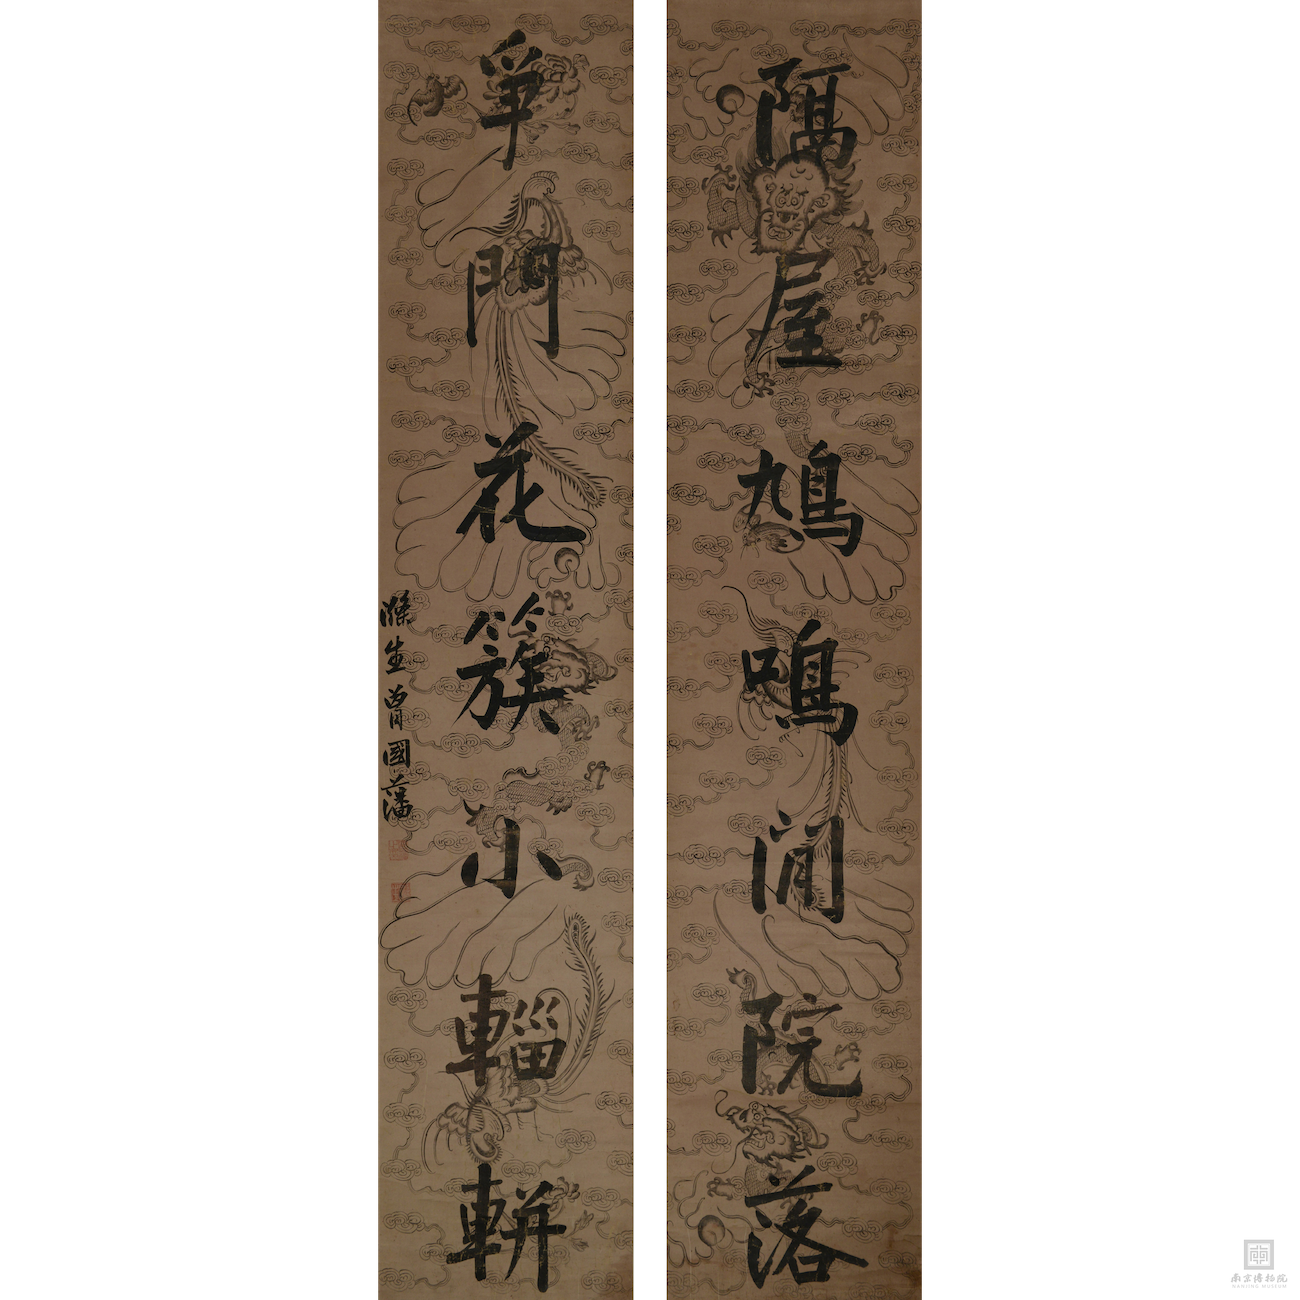 隔屋鳩鳴閒院落
爭門花簇小輜軿
滌生曾國藩
南京博物院
NANJING MUSEUM